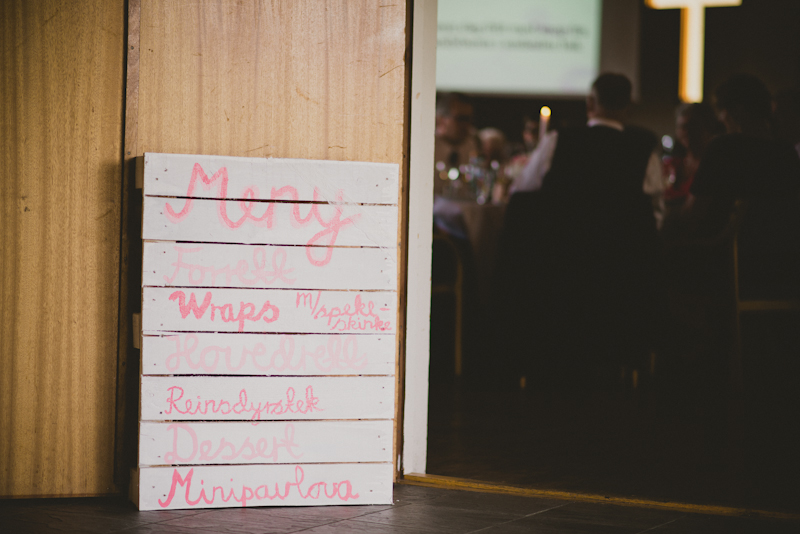 Meny
Forrett
Wraps m/speke-
skinke
Hovedrett
Reinsdyrstek
Dessert
Minipavlova